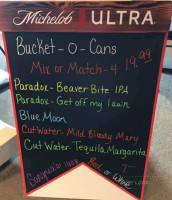 Michelob ULTRA
Bucket-O-Cans
Mix or Match-4 19.99
Paradox-Beaver Bite IPA
Paradox-Get off my lawn
Blue Moon
CutWater-Mild Bloody Mary
Cut Water-Tequila Margarita
Sangria
Red or White
7-